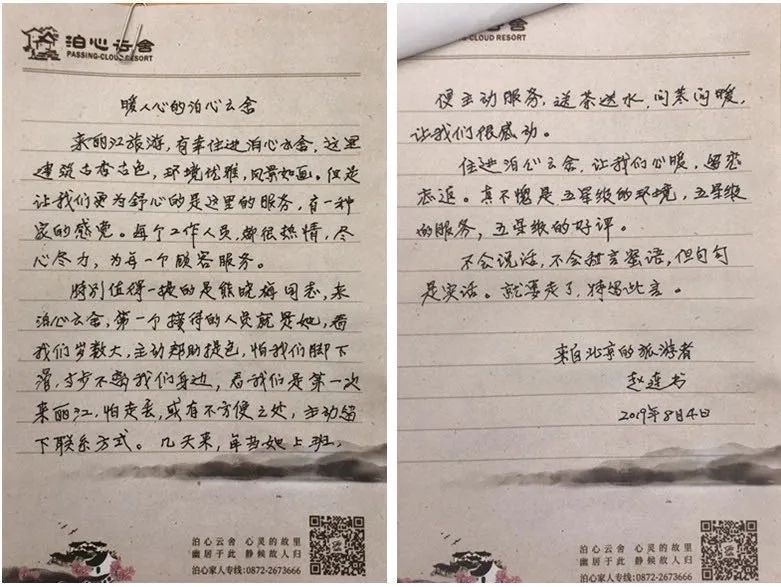 泊心云舍
PASSING-CLOUD RESORT
暖人心的泊心云舍
来丽江旅游，有幸住进泊心云舍，这里
建筑古香古色，环境优雅，风景如画。但是
让我们更为舒心的是这里的服务，有一种
家的感觉。每个工作人员，都很热情，尽
心尽力，为每一个顾客服务。
特别值得一提的是熊晓梅同志，来
泊心云舍，第一个接待的人员就是她，看
我们岁数大，主动帮助提包，怕我们脚下
滑，寸步不离我们身边，看我们是第一次
来丽江，怕走丢，或有不方便之处，主动留
下联系方式。几天来，每当她上班，
泊心云舍 心灵的故里
幽居于此 静候故人归
泊心家人专线:0872-2673666
便主动服务，送茶送水，问寒问暖，
让我们很感动。
住进泊心云舍，让我们心暖，留恋
忘返。真不愧是五星级的环境，五星级
的服务，五星级的好评。
不会说话，不会甜言蜜语，但句句
是实话。就要走了，特留此言。
来自北京的旅游者
赵连书
2019年8月4日
泊心云舍 心灵的故里
幽居于此 静候故人归
泊心家人专线:0872-2673666